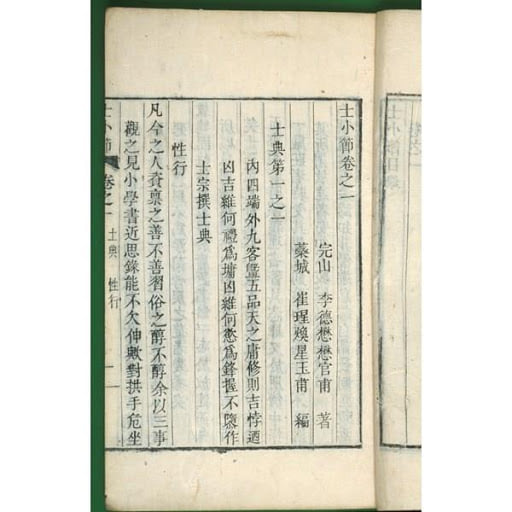 士小節卷之一
完山 李德懋懋官甫 著
藥城 崔瑆煥星玉甫 編
士典第一之一
內四端外九容曁五品天之庸修則吉悖迺
凶吉維何禮爲墉凶維何慾爲鋒握不隳作
士宗撰士典
性行
凡今之人資稟之善不善習俗之醇不醇余以三事
觀之見小學書近思錄能不欠伸歟對拱手危坐
士小節 卷之一 士典 性行 一